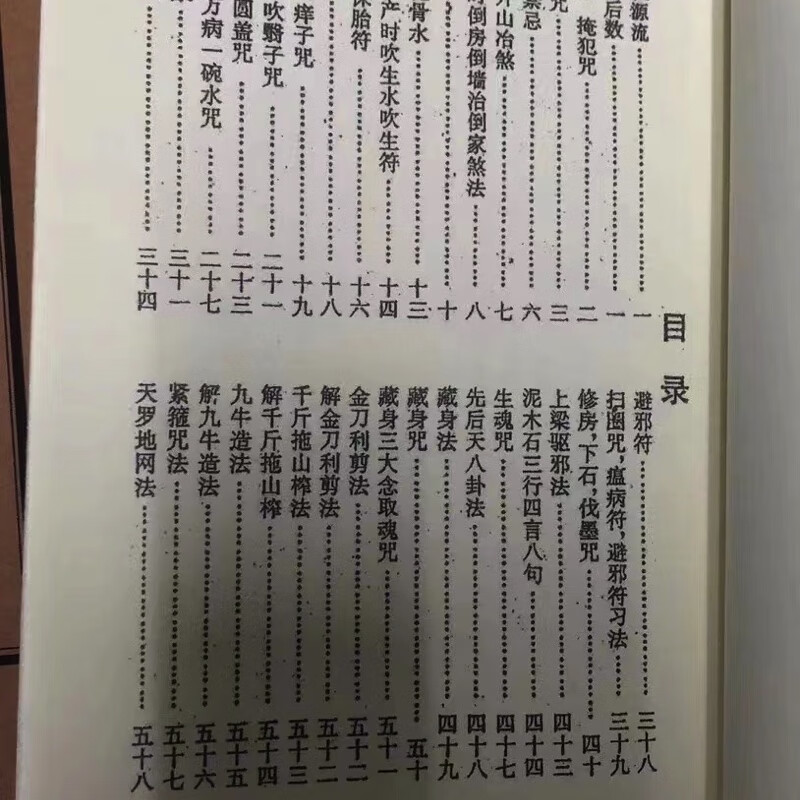 目录
源流……一
后数……一
掩犯咒……二
咒……三
禁忌……六
山冶煞……七
倒房倒墙治倒家煞法……八
……十
骨水……十三
产时吹生水吹生符……十四
保胎符……十六
……十八
痒子咒……十九
吹翳子咒……二十一
圆盖咒……二十三
万病一碗水咒……二十七
……三十一
……三十四
避邪符……三十八
扫圈咒，瘟病符，避邪符习法……三十九
修房，下石，伐墨咒……四十
上梁驱邪法……四十三
泥木石三行四言八句……四十四
生魂咒……四十七
先后天八卦法……四十八
藏身法……四十九
藏身咒……五十
藏身三大念取魂咒……五十一
金刀利剪法……五十二
解金刀利剪法……五十二
千斤拖山榨法……五十三
解千斤拖山榨……五十四
九牛造法……五十五
解九牛造法……五十六
紧箍咒法……五十七
天罗地网法……五十八